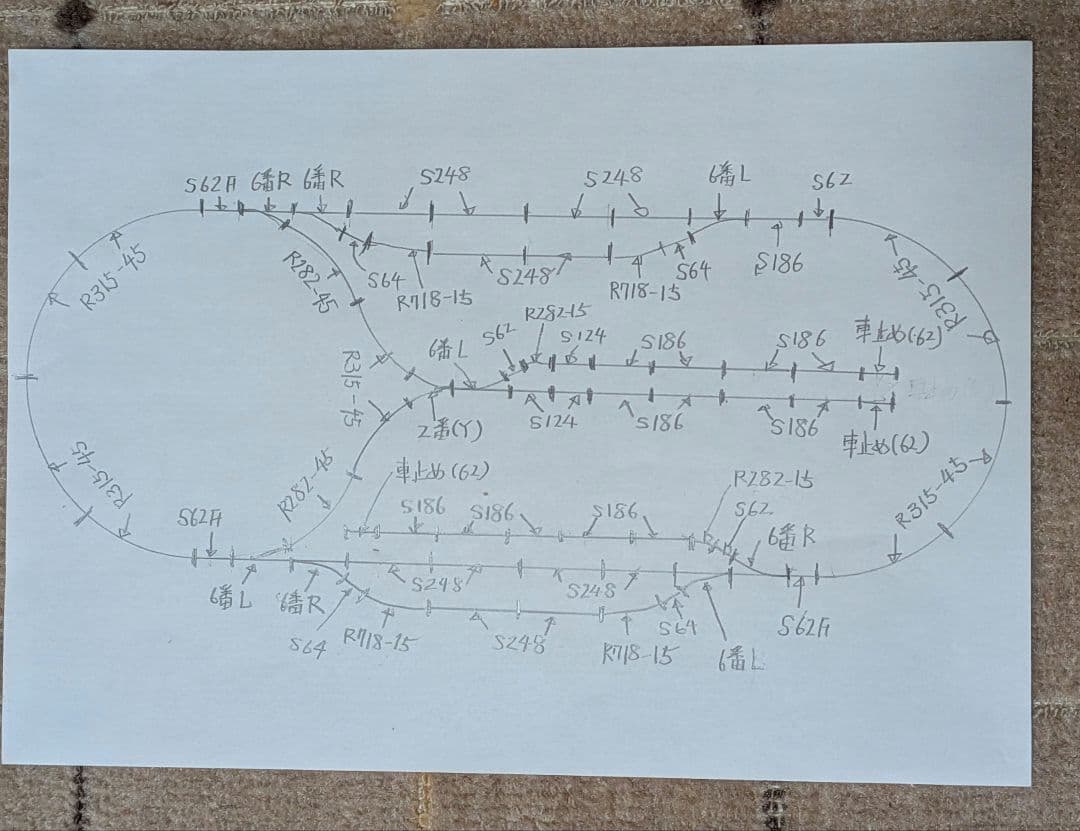 S62F 6番R 6番R
S248
S248
6番L
S62
R315-45
R282-45
S64
R718-15
S248
R718-15
S64
S186
R315-45
R315-45
6番L
S62
R282-15
S124
S186
S186
車止め(62)
2番(Y)
S124
S186
S186
車止め(62)
R315-45
S62F
R282-45
車止め(62)
S186
S186
S186
R282-15
S62
6番R
R315-45
6番L
6番R
S248
S248
S64
R718-15
S248
R718-15
S64
6番L
S62F